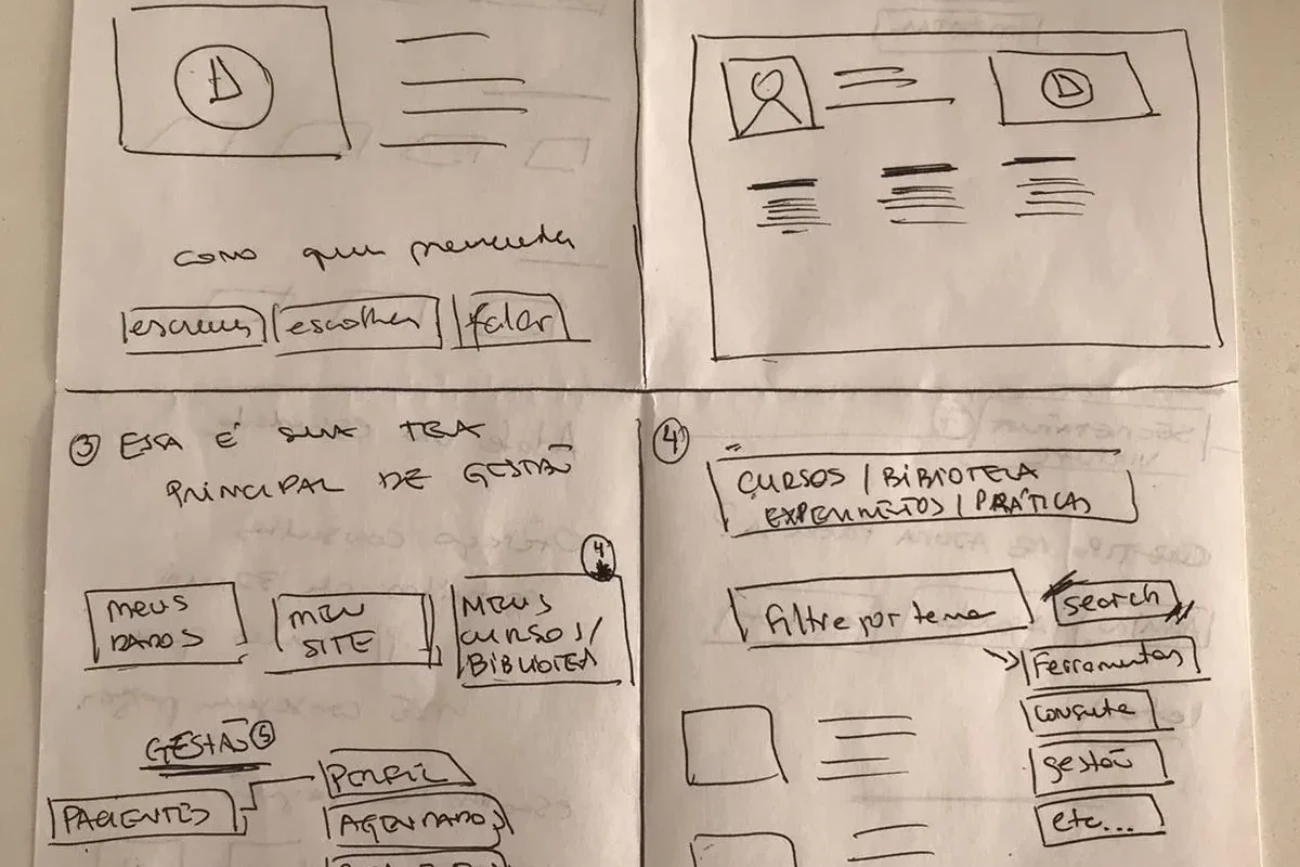 como quer preencher
escrever
escolher
falar
③ ESSA É SUA TELA
PRINCIPAL DE GESTÃO
MEUS
DADOS
MEU
SITE
4
MEUS
CURSOS/
BIBLIOTECA
GESTÃO ⑤
PACIENTES
PERFIL
AGENDADOS
④
CURSOS / BIBLIOTECA
EXPERIMENTOS / PRÁTICAS
filtre por tema
search
Ferramentas
consulta
gestão
etc...